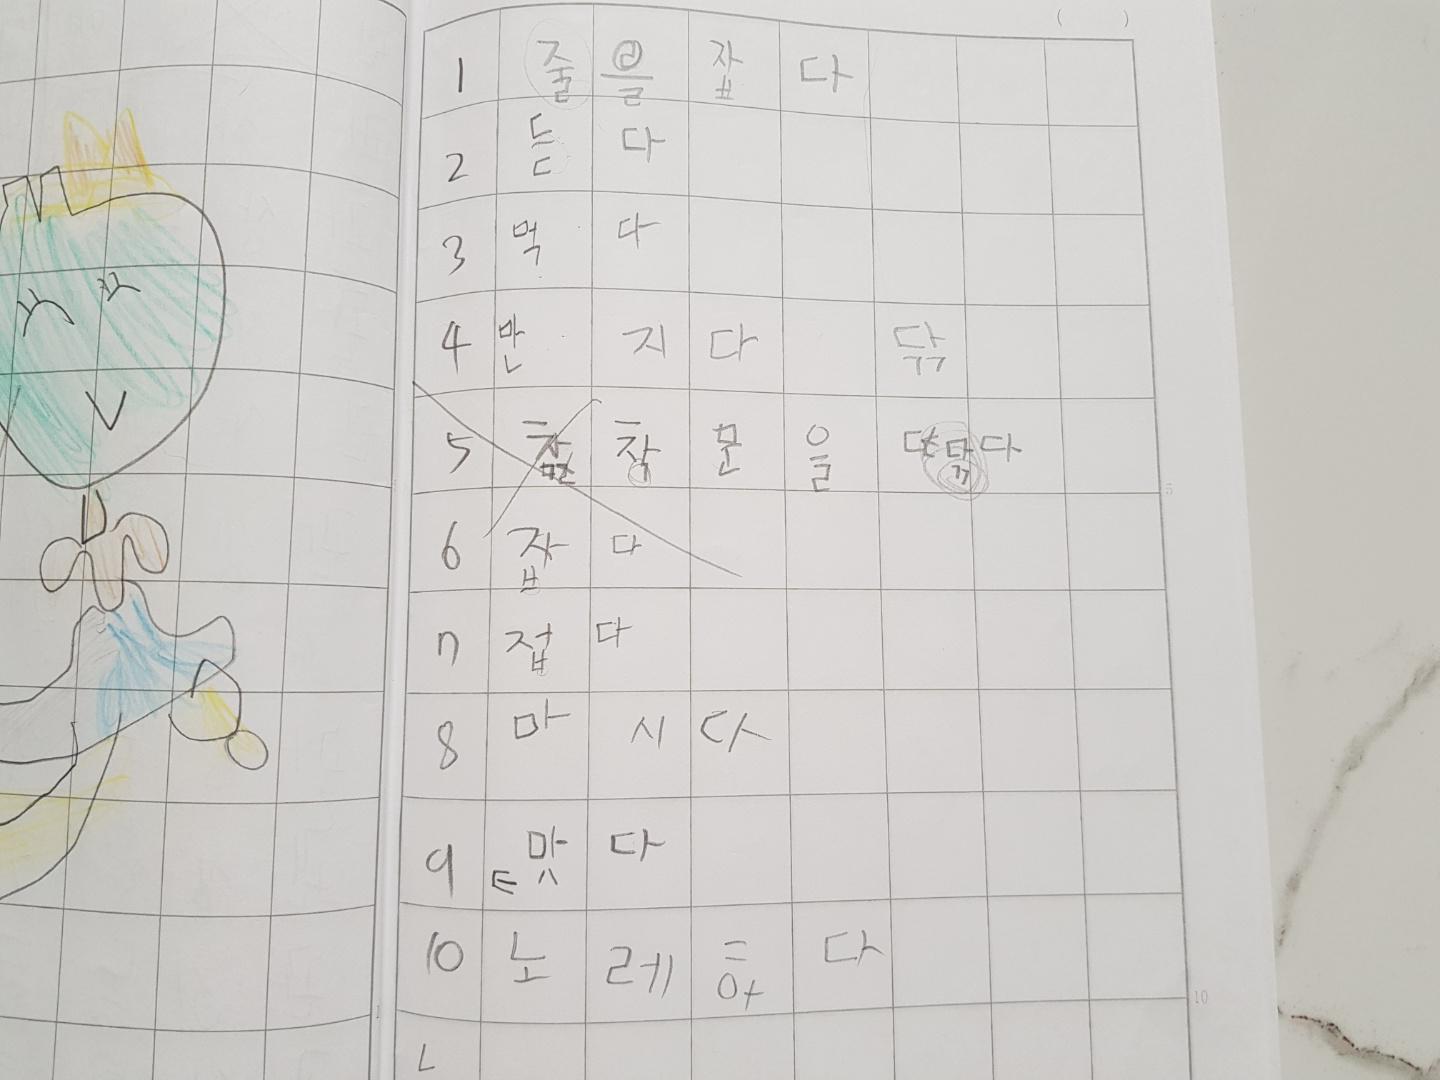 ( )
1 줄을 잡다
2 듣다
3 먹다
4 만지다 닦
5 창문을 닫 닦다
6 잡다
7 접다
8 마시다
9 맛다
10 노레하다
5
10